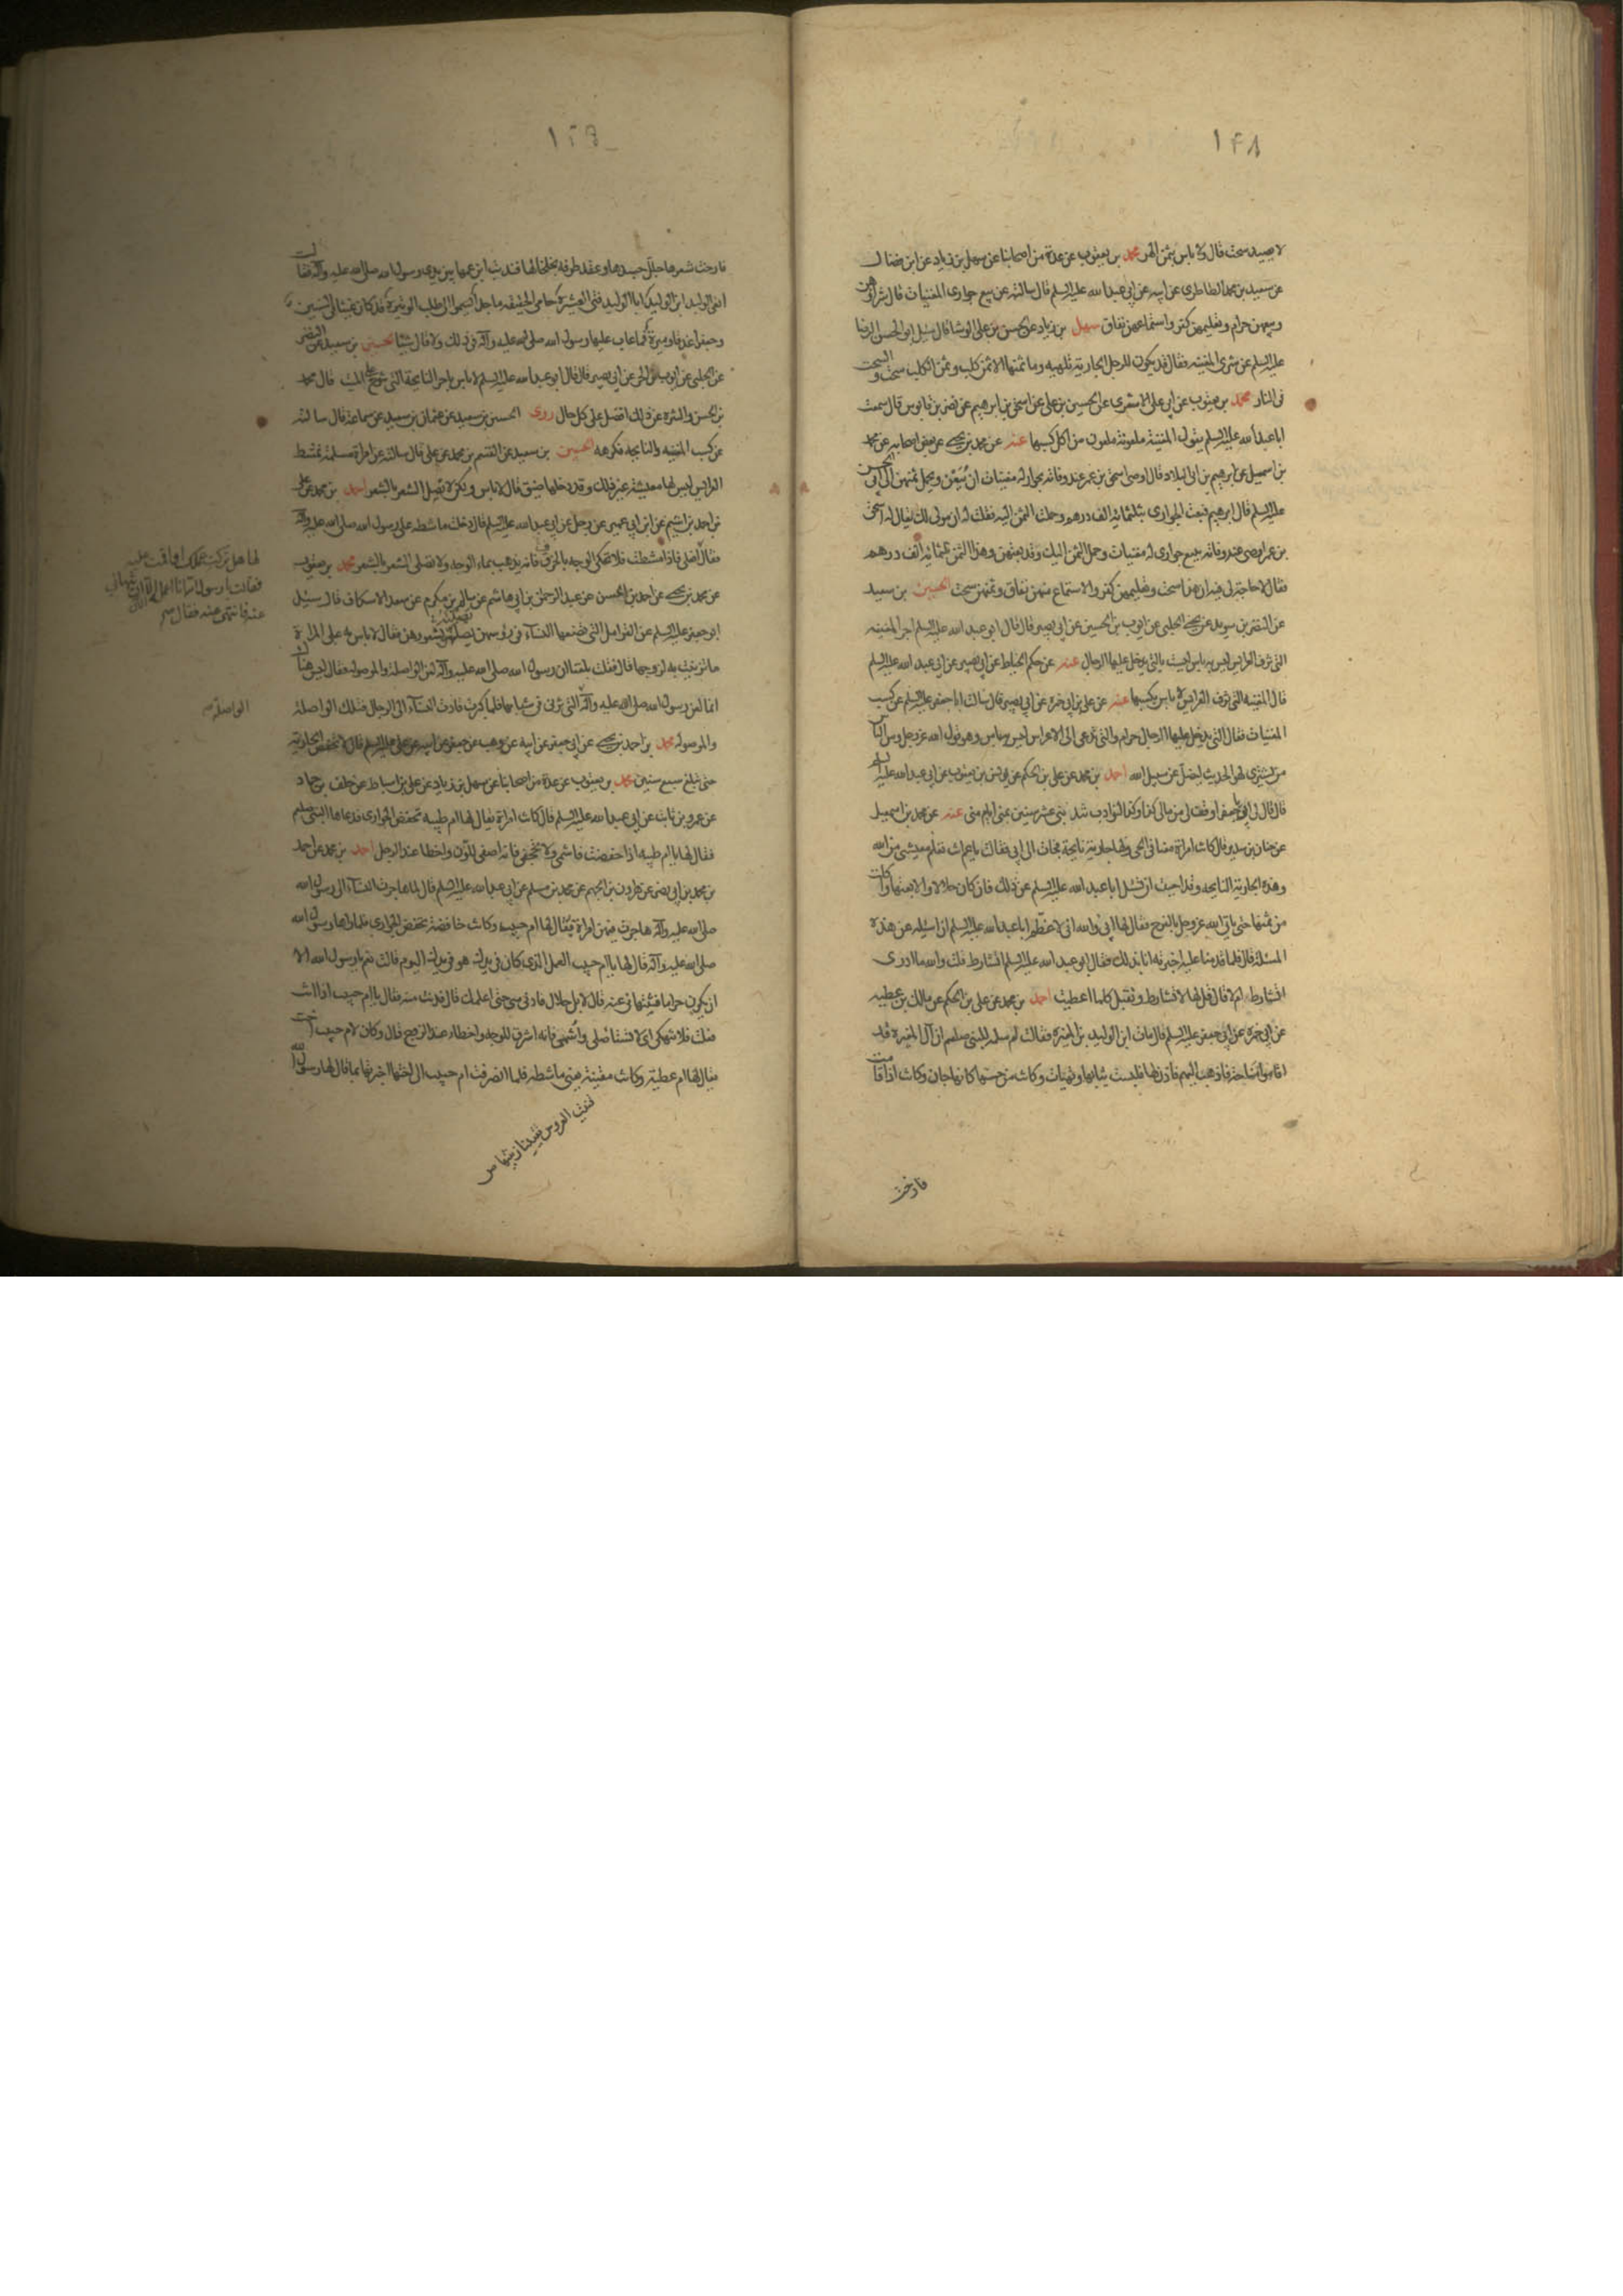 ١٤٨
لا يصيد سحت قال ولا باس بثمن الهر محمد بن يعقوب عن عدة من اصحابنا عن سهل بن زياد عن ابن فضال
عن سعيد بن محمد الطاطرى عن ابيه عن ابي عبد الله عليه السلم قال سالته عن بيع جوارى المغنيات قال شراؤهن
وبيعهن حرام وتعليمهن كفر واستماعهن نفاق سهل بن زياد عن الحسن بن على الوشا قال سئل ابو الحسن الرضا
عليه السلم عن شرى المغنيه فقال قد يكون للرجل الجارية تلهيه وما ثمنها الا ثمن كلب وثمن الكلب سحت والسحت
فى النار محمد بن يعقوب عن ابي على الاشعرى عن الحسين بن على عن اسحق بن ابرهيم عن نضر بن قابوس قال سمعت
ابا عبد الله عليه السلم يقول المغنية ملعونة ملعون من اكل كسبها عنه عن محمد بن يحيى عن بعض اصحابه عن محمد
بن اسمعيل عن ابرهيم بن ابى البلاد قال اوصى اسحق بن عمر عند وفاته بجوار له مغنيات ان نبيعهن ويحمل ثمنهن الى ابى الحسن
عليه السلم قال ابرهيم فبعت الجوارى بثلثمائه الف درهم وحملت الثمن اليه فقلت له ان مولى لك يقال له اسحق
بن عمر اوصى عند وفاته ببيع جوارى له مغنيات وحمل الثمن اليك وقد بعتهن وهذا الثمن ثلثمائه الف درهم
فقال لا حاجة لى فيه ان هذا سحت وتعليمهن كفر والاستماع منهن نفاق وثمنهن سحت الحسين بن سعيد
عن النضر بن سويد عن يحيى الحلبى عن ايوب بن الحسين عن ابي بصير قال قال ابو عبد الله عليه السلم اجر المغنيه
التى تزف العرايس ليس به باس ليست بالتى يدخل عليها الرجال عنه عن حكم الخياط عن ابي بصير عن ابي عبد الله عليه السلم
قال المغنيه التى تزف العرايس لا باس بكسبها عنه عن على بن ابي حمزه عن ابي بصير قال سالت ابا جعفر عليه السلم عن كسب
المغنيات فقال التى يدخل عليها الرجال حرام والتى تدعى الى الاعراس ليس به باس وهو قول الله عز وجل ومن الناس
من يشترى لهو الحديث ليضل عن سبيل الله احمد بن محمد عن على بن الحكم عن يونس بن يعقوب عن ابي عبد الله عليه السلم
قال قال لى ابي يا جعفر اوقف لى من مالى كذا وكذا لنوادب تندبنى عشر سنين بمنى ايام منى عنه عن محمد بن اسمعيل
عن حنان بن سدير قال كانت امراة معنا فى الحى ولها جارية نايحة فجاءت الى ابي فقالت يا عم انت تعلم معيشتى من الله
وهذه الجارية النايحه وقد احببت ان تسئل ابا عبد الله عليه السلم عن ذلك فان كان حلالا والا بعتها واكلت
من ثمنها حتى ياتى الله عز وجل بالفرج فقال لها ابي والله انى لاعظم ابا عبد الله عليه السلم ان اسئله عن هذه
المسئلة قال فلما قدمنا عليه اخبرته انا بذلك فقال ابو عبد الله عليه السلم اتشارط قلت والله ما ادرى
اتشارط ام لا قال قل لها لا تشارط وتقبل كلما اعطيت احمد بن محمد عن على بن الحكم عن مالك بن عطيه
عن ابي حمزه عن ابي جعفر عليه السلم قال مات ابن الوليد بن المغيرة فقالت ام سلمه للنبى صلعم ان آل المغيرة قد
اقاموا مناحة فاذهب اليهم فاذن لها فلبست ثيابها وتهيات وكانت من حسنها كانها جان وكانت اذا قامت
فارخت
فارخت شعرها جلل جسدها وعقد طرفه بخلخالها فندبت ابن عمها بين يدى رسول الله صلى الله عليه وآله فقالت
انعى الوليد ابن الوليد ابا الوليد فتى العشيرة حامى الحقيقه ماجدا يسموا الى طلب الوتيرة قد كان غيثا فى السنين
وجعفرا غدقا وميرة فما عاب عليها رسول الله صلى الله عليه وآله فى ذلك ولا قال شيئا الحسين بن سعيد عن النضر
عن الحلبى عن ايوب بن الحر عن ابي بصير قال قال ابو عبد الله عليه السلم لا باس باجر النايحة التى تنوح على الميت قال محمد
بن الحسن والتنزه عن ذلك افضل على كل حال روى الحسين بن سعيد عن عثمان بن سعيد عن سماعة قال سالته
عن كسب المغنيه والنايحه فكرهه الحسين بن سعيد عن القسم بن محمد عن على قال سالته عن امراة مسلمة تمشط
العرايس ليس لها معيشة غير ذلك وقد دخلها ضيق قال لا باس ولكن لا تصل الشعر بالشعر احمد بن محمد عن على
بن احمد بن اشيم عن ابن ابي عمير عن رجل عن ابي عبد الله عليه السلم قال دخلت ماشطه على رسول الله صلى الله عليه وآله
فقال افعلى فاذا مشطت فلا تحكى الوجه بالخرق فانه يذهب بماء الوجه ولا تصلى الشعر بالشعر محمد بن يعقوب
عن محمد بن يحيى عن احمد بن الحسن عن عبد الرحمن بن ابي هاشم عن سالم بن مكرم عن سعد الاسكاف قال سئل
ابو جعفر عليه السلم عن القرامل التى تضعها النساء فى رؤسهن يصلنه بشعورهن فقال لا باس به على المراة
ما تزينت به لزوجها قال فقلت بلغنا ان رسول الله صلى الله عليه وآله لعن الواصلة والموصوله فقال ليس هناك
انما لعن رسول الله صلى الله عليه وآله التى تزنى فى شبابها فلما كبرت قادت النساء الى الرجال فتلك الواصلة
والموصوله محمد بن احمد بن يحيى عن ابي جعفر عن ابيه عن وهب عن جعفر عن ابيه عن على عليه السلم قال لا تخفض الجارية
حتى تبلغ سبع سنين محمد بن يعقوب عن عدة من اصحابنا عن سهل بن زياد عن على بن اسباط عن خلف بن حماد
عن عمرو بن ثابت عن ابي عبد الله عليه السلم قال كانت امراة يقال لها ام طيبه تخفض الجوارى فدعاها النبى صلعم
فقال لها يا ام طيبه اذا خفضت فاشمى ولا تجحفى فانه اصفى للون واحظا عند الرجل احمد بن محمد عن احمد
بن محمد بن ابي نصر عن هارون بن الجهم عن محمد بن مسلم عن ابي عبد الله عليه السلم قال لما هاجرت النساء الى رسول الله
صلى الله عليه وآله هاجرت فيهن امراة يقال لها ام حبيب وكانت خافضة تخفض الجوارى فلما راها رسول الله
صلى الله عليه وآله قال لها يا ام حبيب العمل الذى كان فى يدك هو فى يدك اليوم قالت نعم يا رسول الله الا
ان يكون حراما فتنهانى عنه قال لا بل حلال فادنى منى حتى اعلمك قال فدنت منه فقال يا ام حبيب اذا انت
فعلت فلا تنهكى اى لا تستاصلى واشمى فانه اشرق للوجه واحظا عند الزوج قال وكان لام حبيب اخت
يقال لها ام عطية وكانت مقينة يعنى ماشطه فلما انصرفت ام حبيب الى اختها اخبرتها بما قال لها رسول الله
لها هل تركت عملك او اقمت عليه
فقالت يا رسول الله انا اعمله الا ان تنهانى
عنه فانتهى عنه فقال
الواصلة